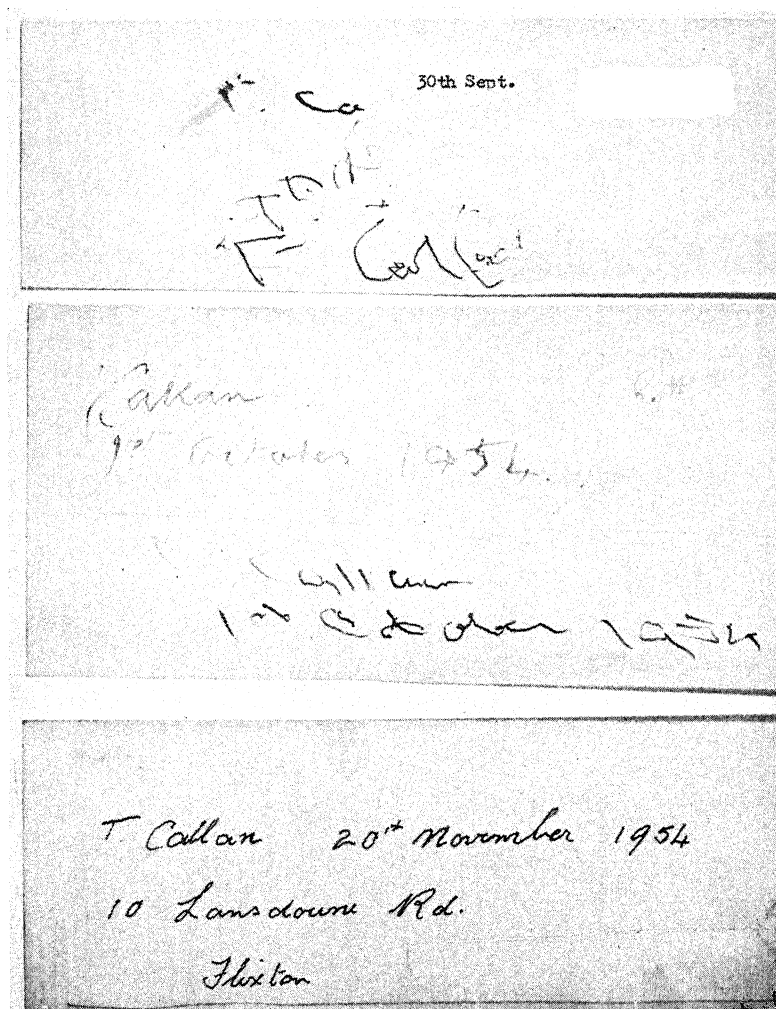 30th Sept.
T. Ca
Callan
1st October 1954
Callan
1st October 1954
T. Callan 20th November 1954
10 Lansdowne Rd.
Flixton